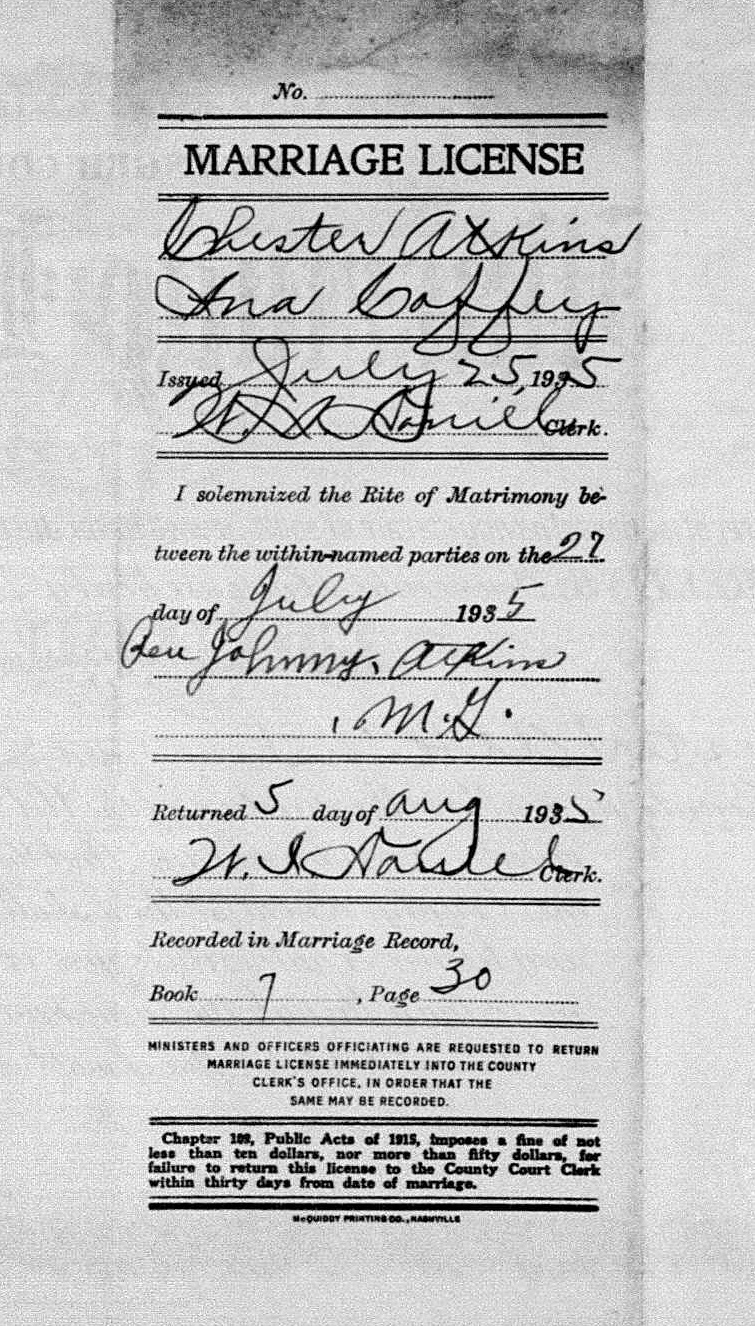 No.
MARRIAGE LICENSE
Chester Atkins
Ina Coffey
Issued July 25, 1935
W. I. Daniel Clerk.
I solemnized the Rite of Matrimony be-
tween the within-named parties on the 27
day of July 1935
Rev Johnny. Atkins
, M.G.
Returned 5 day of Aug 1935
W. I. Daniel Clerk.
Recorded in Marriage Record,
Book 7, Page 30
MINISTERS AND OFFICERS OFFICIATING ARE REQUESTED TO RETURN
MARRIAGE LICENSE IMMEDIATELY INTO THE COUNTY
CLERK'S OFFICE, IN ORDER THAT THE
SAME MAY BE RECORDED.
Chapter 109, Public Acts of 1915, imposes a fine of not
less than ten dollars, nor more than fifty dollars, for
failure to return this license to the County Court Clerk
within thirty days from date of marriage.
McQUIDDY PRINTING CO., NASHVILLE